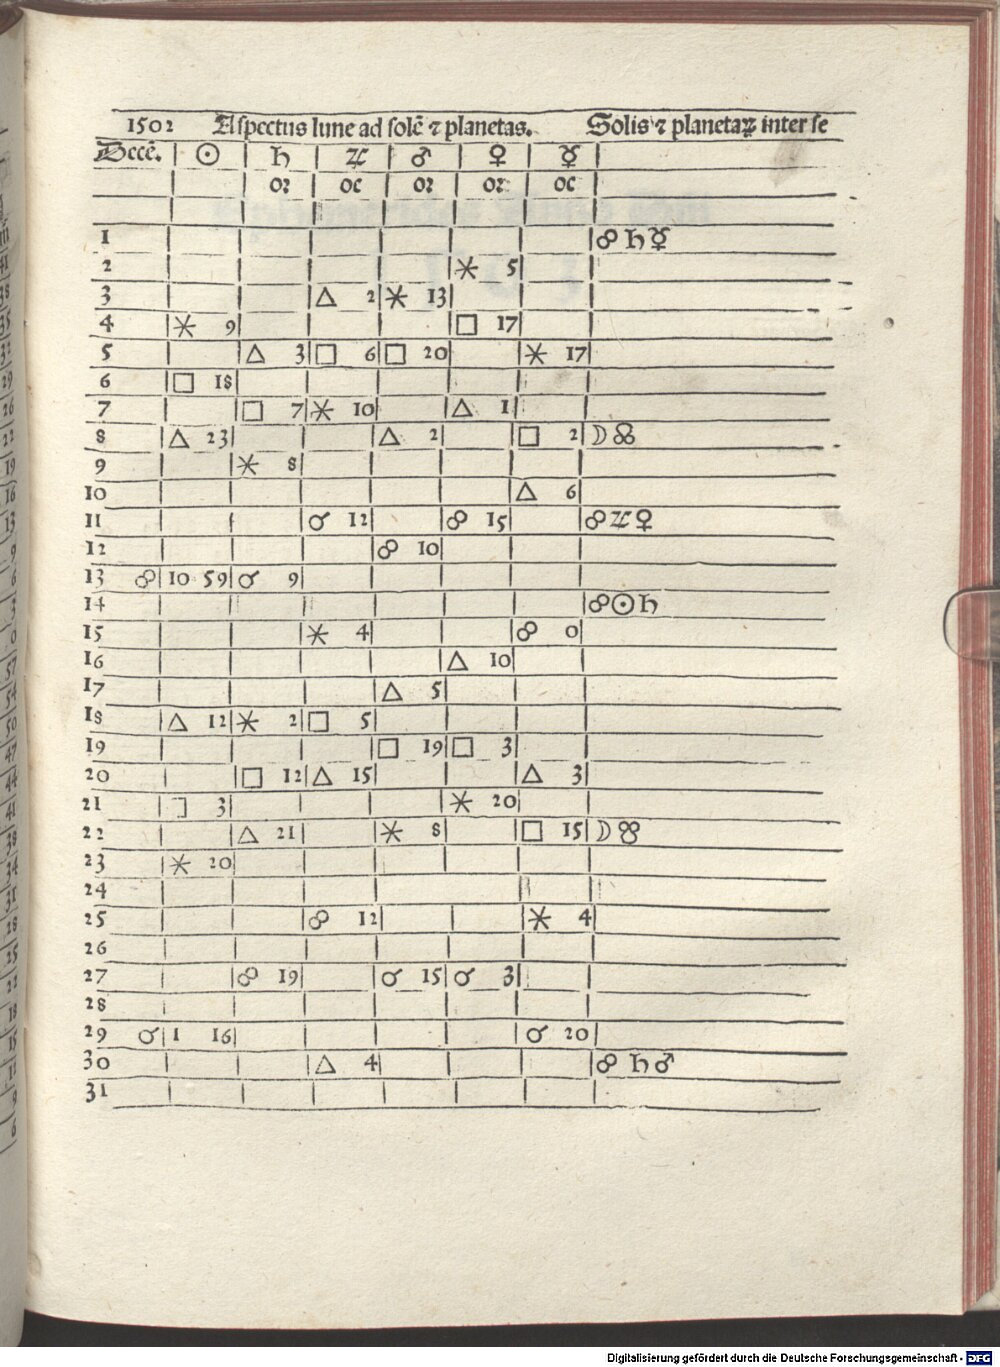 1502 Aspectus lune ad solē ⁊ planetas. Solis ⁊ planetaꝝ inter se
Decē. ☉ ♄ ♃ ♂ ♀ ☿
oꝛ oc oꝛ oꝛ oc
1 ☍ ♄ ☿
2 ⚹ 5
3 △ 2 ⚹ 13
4 ⚹ 9 □ 17
5 △ 3 □ 6 □ 20 ⚹ 17
6 □ 18
7 □ 7 ⚹ 10 △ 1
8 △ 23 △ 2 □ 2 ☽ ☊
9 ⚹ 8
10 △ 6
11 ☌ 12 ☍ 15 ☍ ♃ ♀
12 ☍ 10
13 ☍ 10 59 ☌ 9
14 ☍ ☉ ♄
15 ⚹ 4 ☍ 0
16 △ 10
17 △ 5
18 △ 12 ⚹ 2 □ 5
19 □ 19 □ 3
20 □ 12 △ 15 △ 3
21 □ 3 ⚹ 20
22 △ 21 ⚹ 8 □ 15 ☽ ☋
23 ⚹ 20
24
25 ☍ 12 ⚹ 4
26
27 ☍ 19 ☌ 15 ☌ 3
28
29 ☌ 1 16 ☌ 20
30 △ 4 ☍ ♄ ♂
31
Digitalisierung gefördert durch die Deutsche Forschungsgemeinschaft - DFG